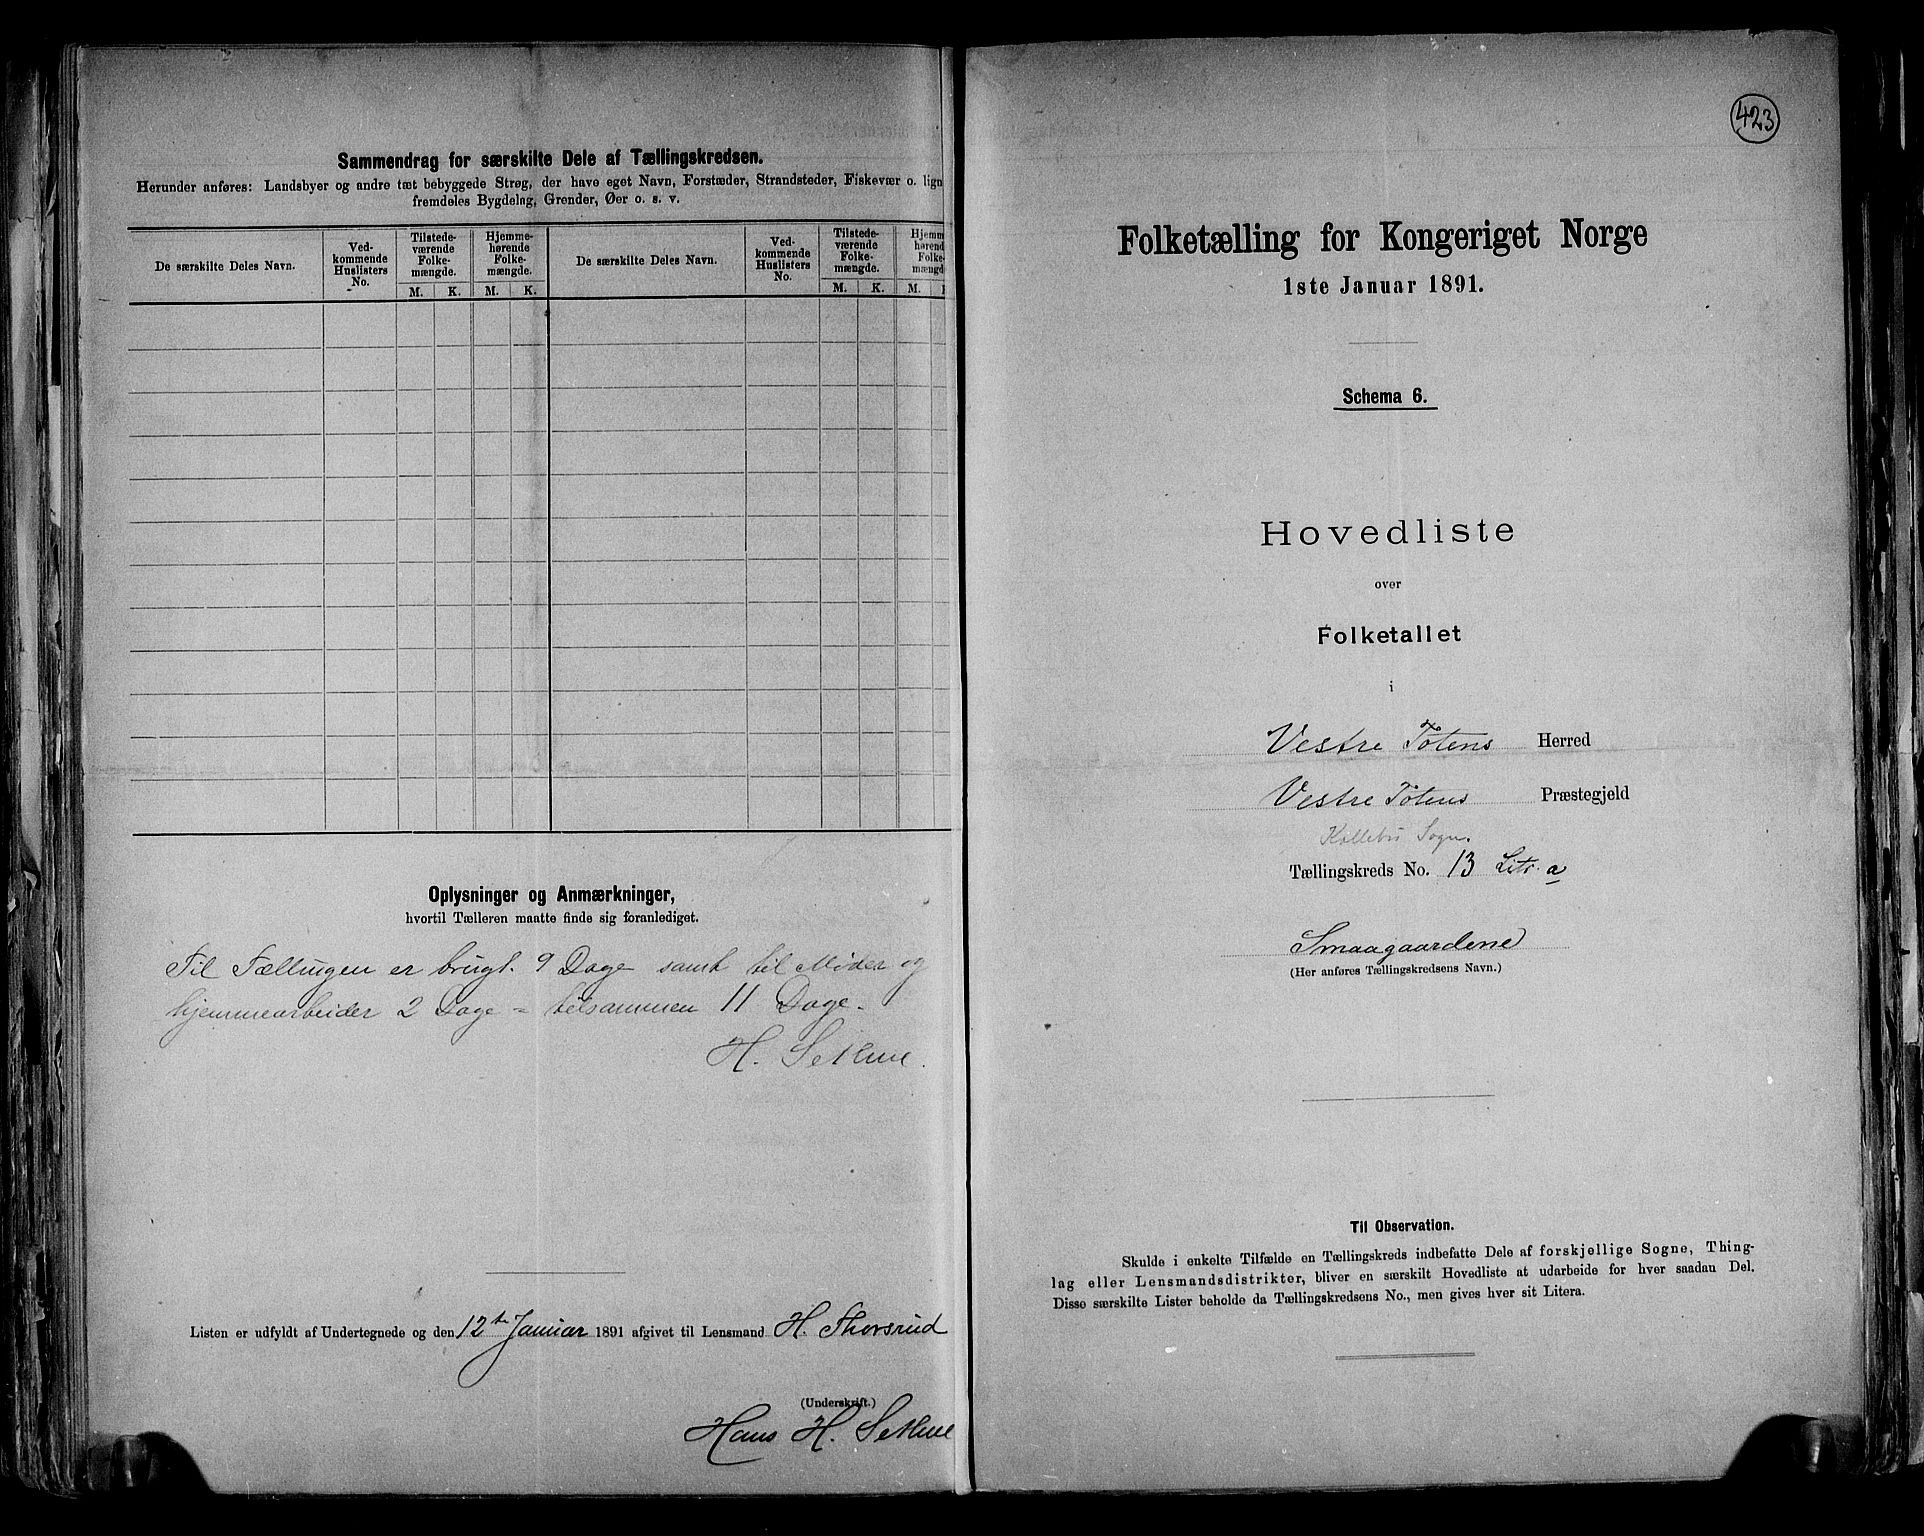 Sammendrag for særskilte Dele af Tællingskredsen.
Herunder anføres: Landsbyer og andre tæt bebyggede Strøg, der have eget Navn, Forstæder, Strandsteder, Fiskevær o. lign
fremdeles Bygdelag, Grender, Øer o. s. v.
De særskilte Deles Navn.
Ved-
kommende
Huslisters
No.
Tilstede-
værende
Folke-
mængde.
Hjemme-
hørende
Folke-
mængde.
M. K. M. K.
De særskilte Deles Navn.
Ved-
kommende
Huslisters
No.
Tilstede-
værende
Folke-
mængde.
Hjemm
hørend
Folke-
mængd
M. K. M.
Oplysninger og Anmærkninger,
hvortil Tælleren maatte finde sig foranlediget.
Til Tællingen er brugt. 9 Dage samt til Møder og
hjemmearbeider 2 Dage = tilsammen 11 Dage.
H. Sethne.
Listen er udfyldt af Undertegnede og den 12te Januar 1891 afgivet til Lensmand H. Thorsrud
(Underskrift.)
Hans H. Sethne
423
Folketælling for Kongeriget Norge
1ste Januar 1891.
Schema 6.
Hovedliste
over
Folketallet
i
Vestre Totens Herred
Vestre Totens Præstegjeld
Kolbu Sogn.
Tællingskreds No. 13 Litr. a
Smaagaardene
(Her anføres Tællingskredsens Navn.)
Til Observation.
Skulde i enkelte Tilfælde en Tællingskreds indbefatte Dele af forskjellige Sogne, Thing-
lag eller Lensmandsdistrikter, bliver en særskilt Hovedliste at udarbeide for hver saadan Del.
Disse særskilte Lister beholde da Tællingskredsens No., men gives hver sit Litera.